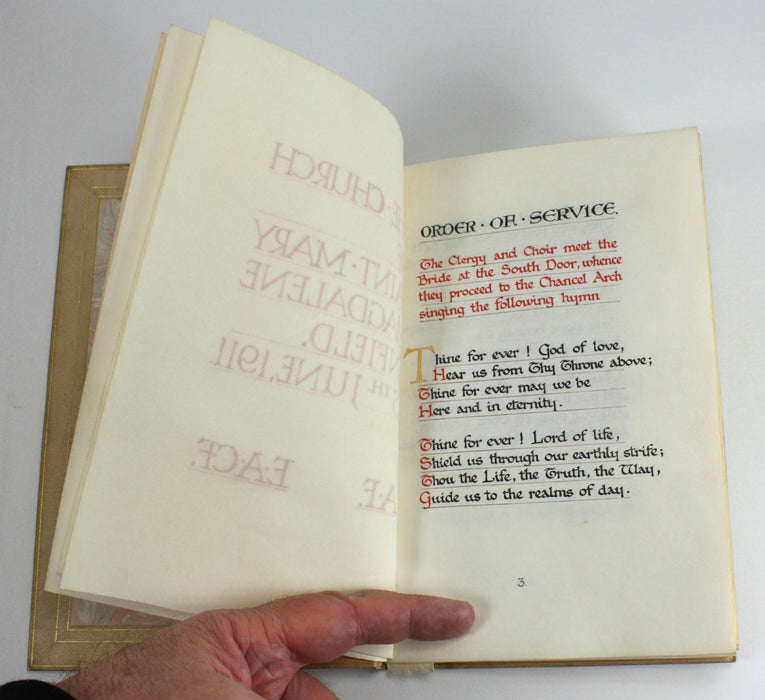 E·CHURCH
INT·MARY
AGDALENE
NFIELD.
TH JUNE,1911.
A·F. E·A·C·F.
ORDER·OF·SERVICE.
The Clergy and Choir meet the
Bride at the South Door, whence
they proceed to the Chancel Arch
singing the following hymn
Thine for ever! God of love,
Hear us from Thy Throne above;
Thine for ever may we be
Here and in eternity.
Thine for ever! Lord of life,
Shield us through our earthly strife;
Thou the Life, the Truth, the Way,
Guide us to the realms of day.
3.